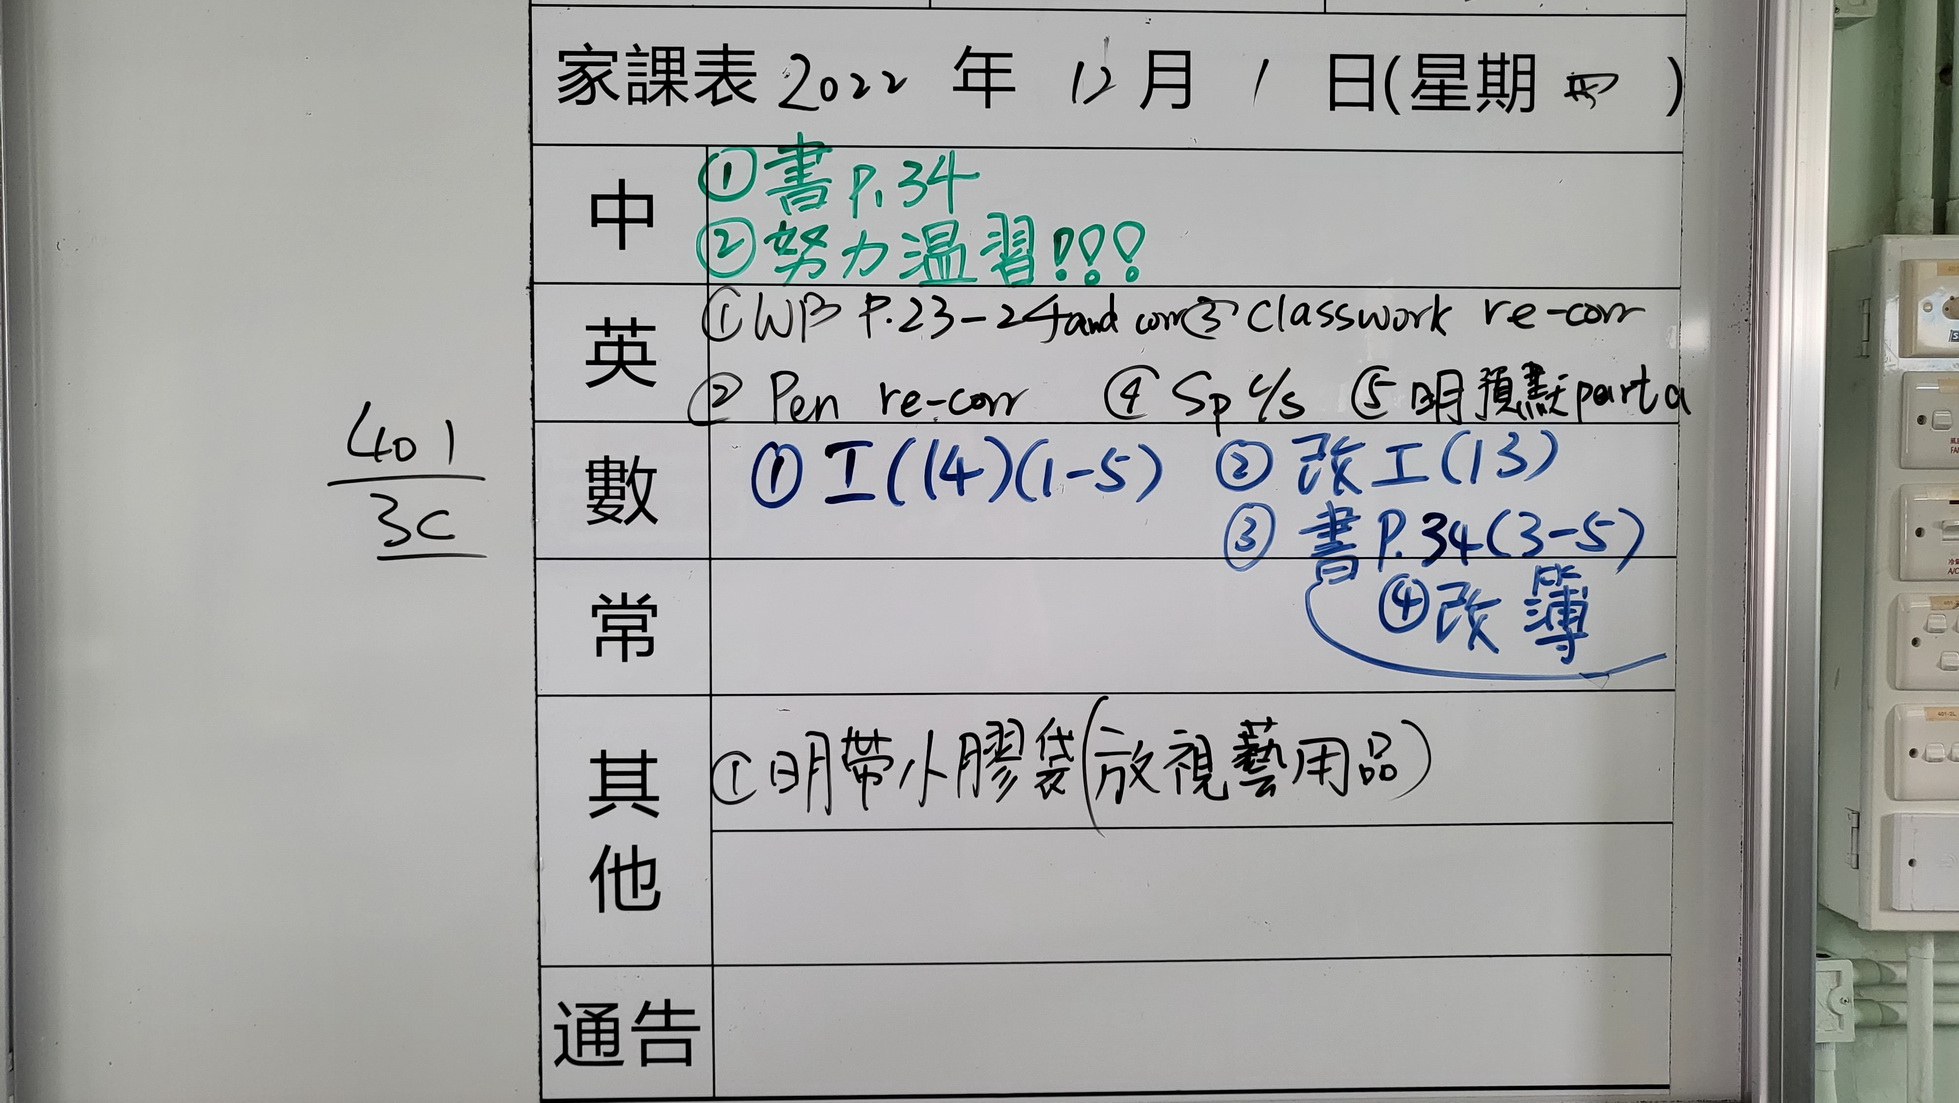 家課表 2022 年 12 月 1 日(星期 四 )
中
①書 P.34
②努力溫習!!!
英
①WB P.23-24 and corr ③ Classwork re-corr
② Pen re-corr ④ Sp c/s ⑤ 明預默 part a
401
3C
數
① 工(14)(1-5) ② 改工(13)
③ 書 P.34(3-5)
④改簿
常
其他
①明帶小膠袋(放視藝用品)
通告